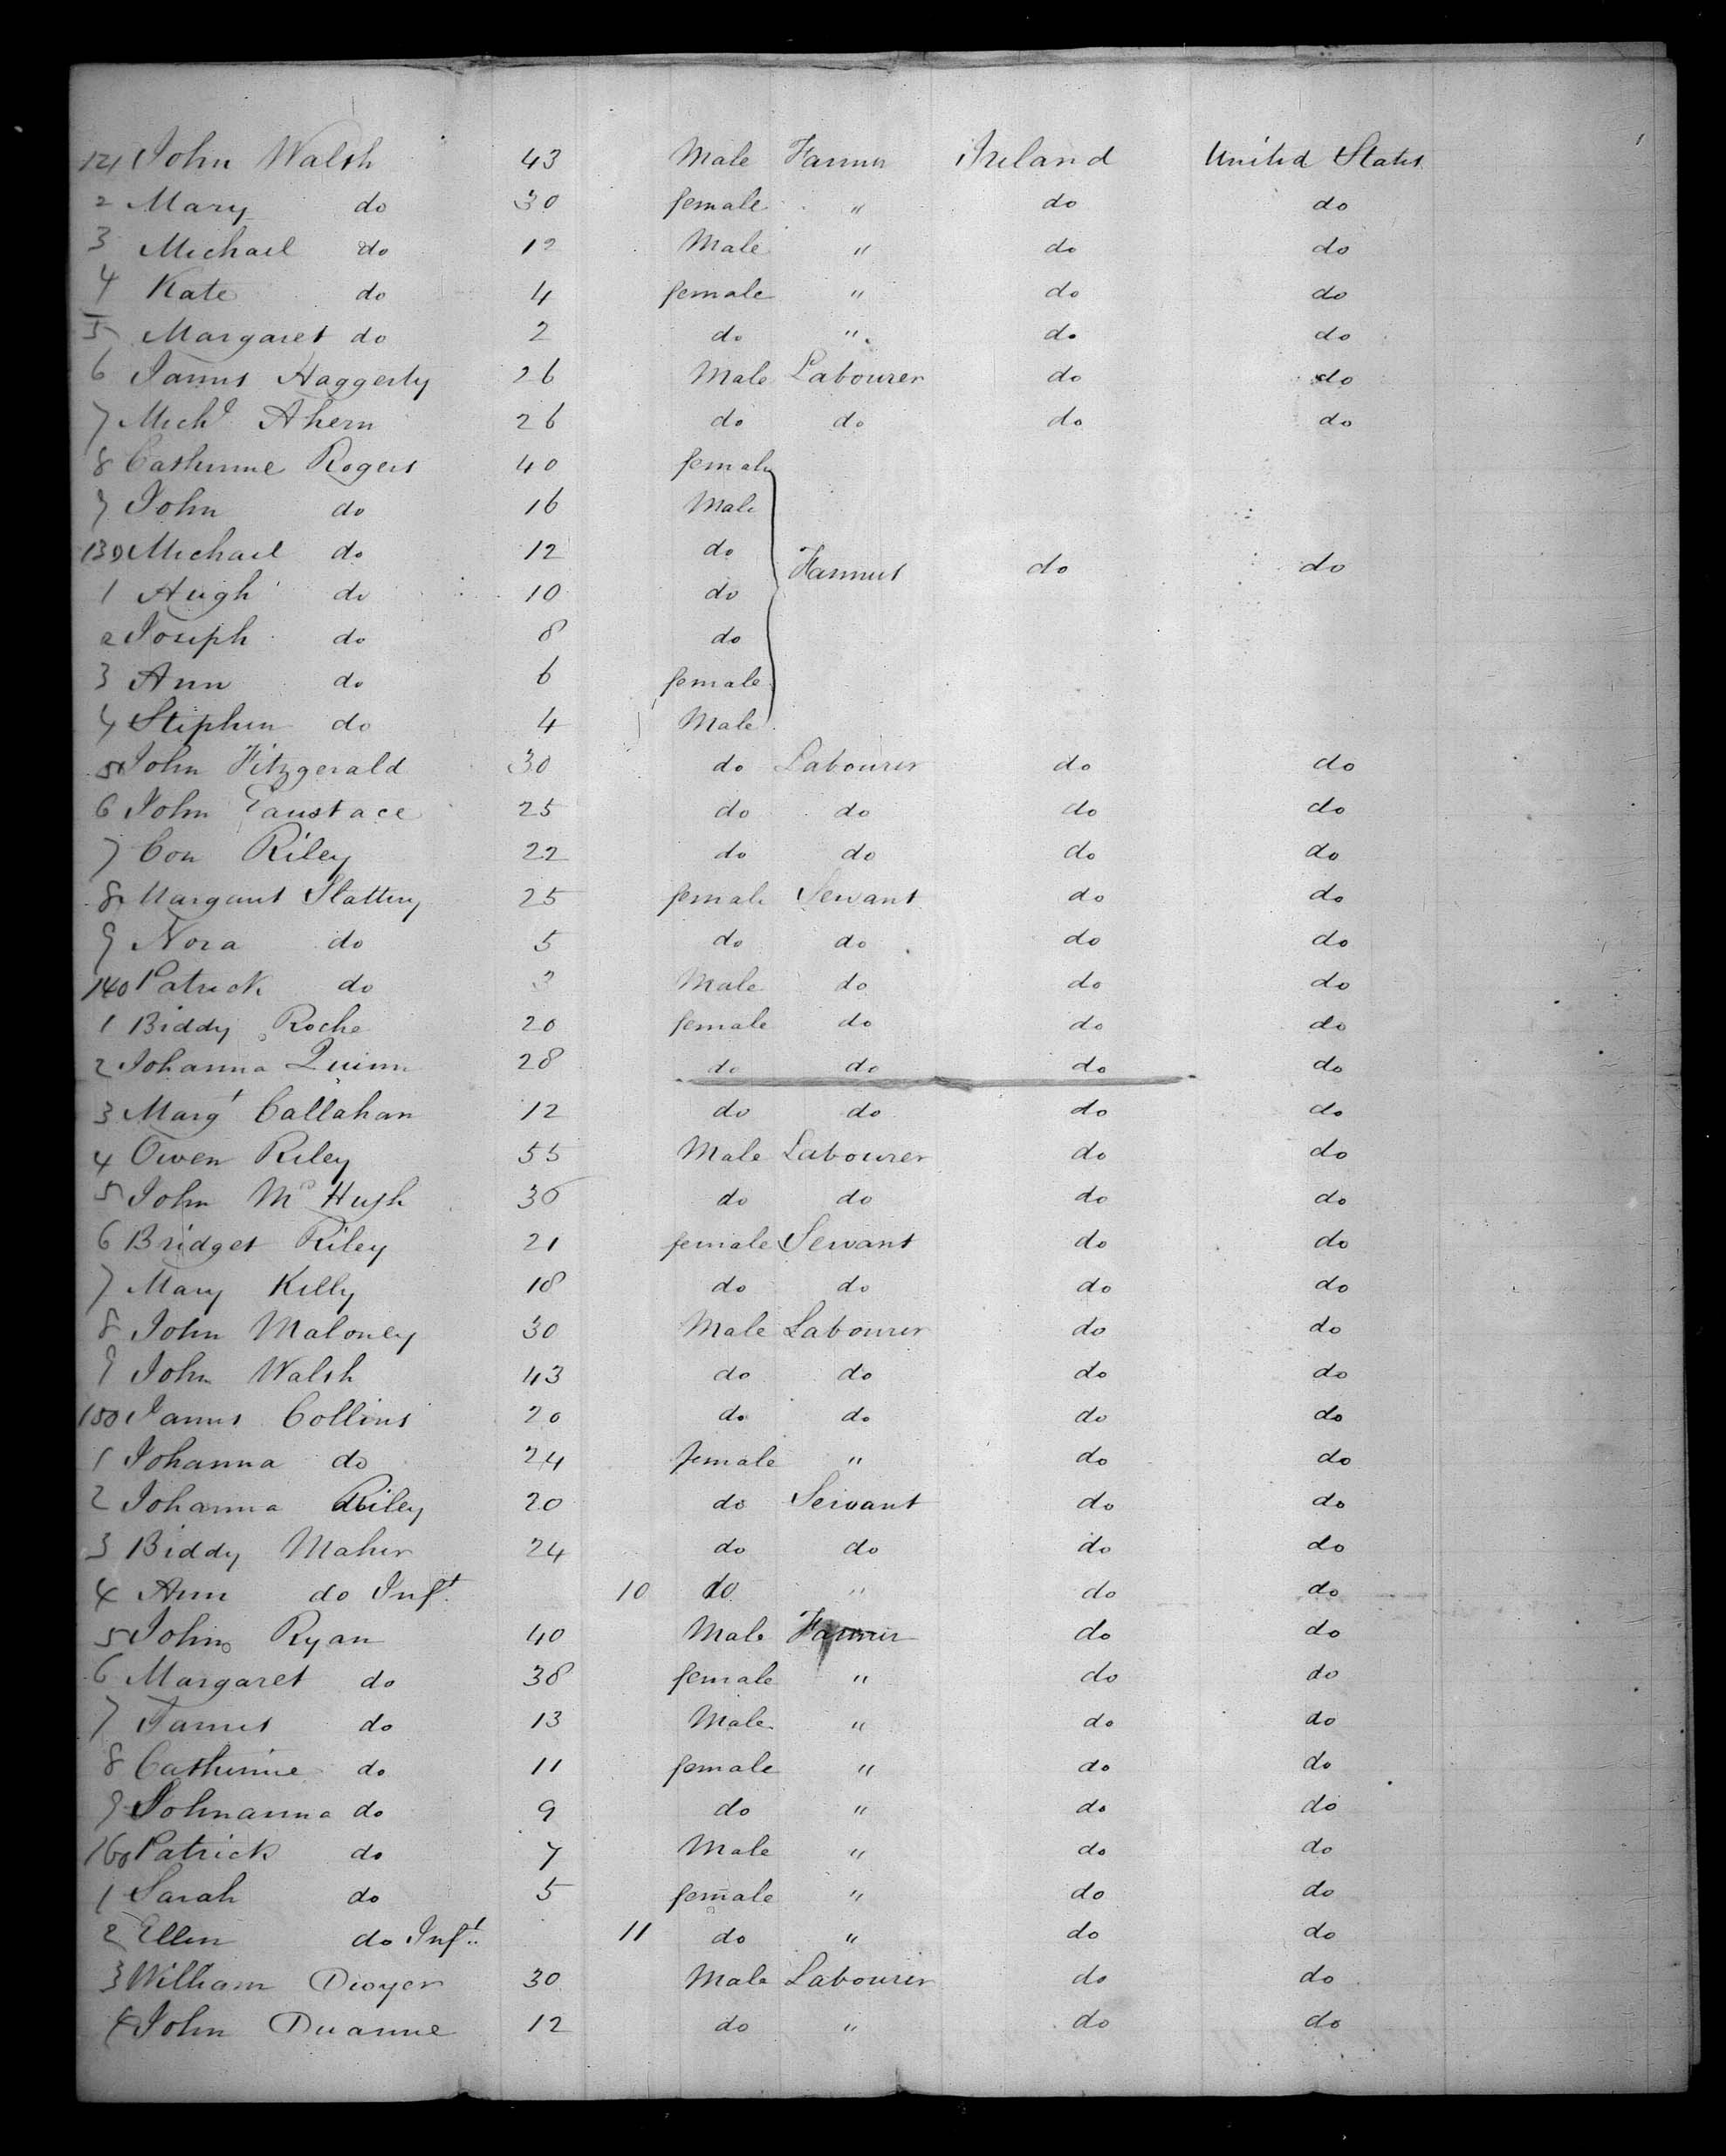 121 John Walsh 43 Male Farmer Ireland United States
2 Mary do 30 female " do do
3 Michael do 12 Male " do do
4 Kate do 4 female " do do
5 Margaret do 2 do " do do
6 James Haggerty 26 Male Labourer do do
7 Michl Ahern 26 do do do do
8 Catherine Rogers 40 female
9 John do 16 Male
130 Michael do 12 do Farmers do do
1 Hugh do 10 do
2 Joseph do 8 do
3 Ann do 6 female
4 Stephen do 4 Male
5 John Fitzgerald 30 do Labourer do do
6 John Eaustace 25 do do do do
7 Con Riley 22 do do do do
8 Margaret Slattery 25 female Servant do do
9 Nora do 5 do do do do
140 Patrick do 3 Male do do do
1 Biddy Roche 20 female do do do
2 Johanna Quinn 28 do do do do
3 Margt Callahan 12 do do do do
4 Owen Riley 55 Male Labourer do do
5 John Mc Hugh 36 do do do do
6 Bridget Riley 21 female Servant do do
7 Mary Kelly 18 do do do do
8 John Maloney 30 Male Labourer do do
9 John Walsh 43 do do do do
150 James Collins 20 do do do do
1 Johanna do 24 female " do do
2 Johanna Riley 20 do Servant do do
3 Biddy Maher 24 do do do do
4 Ann do Inft 10 do " do do
5 John Ryan 40 Male Farmer do do
6 Margaret do 38 female " do do
7 James do 13 Male " do do
8 Catherine do 11 female " do do
9 Johnanna do 9 do " do do
160 Patrick do 7 Male " do do
1 Sarah do 5 female " do do
2 Ellen do Inft 11 do " do do
3 William Dwyer 30 Male Labourer do do
4 John Duanne 12 do " do do